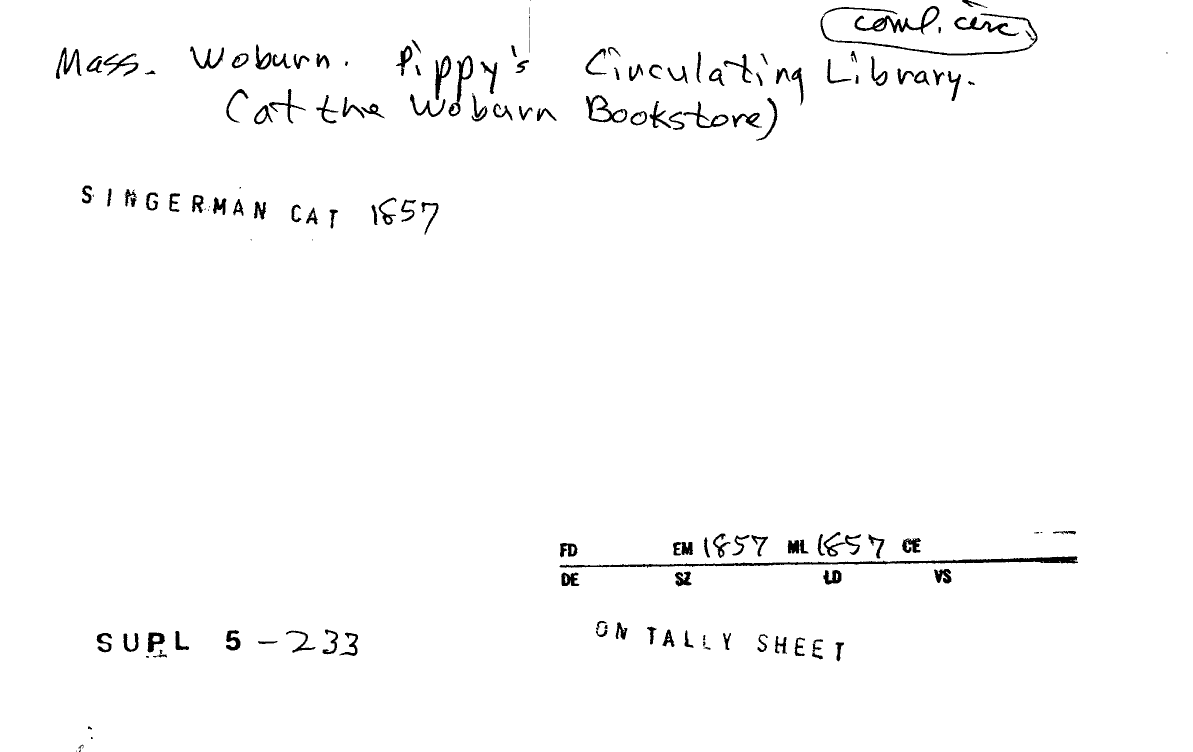 coml. circ.
Mass. Woburn. Pippy's Circulating Library.
(at the Woburn Bookstore)
SINGERMAN CAT 1857
FD EM 1857 ML 1857 CE
DE SZ LD VS
SUPL 5-233
ON TALLY SHEET